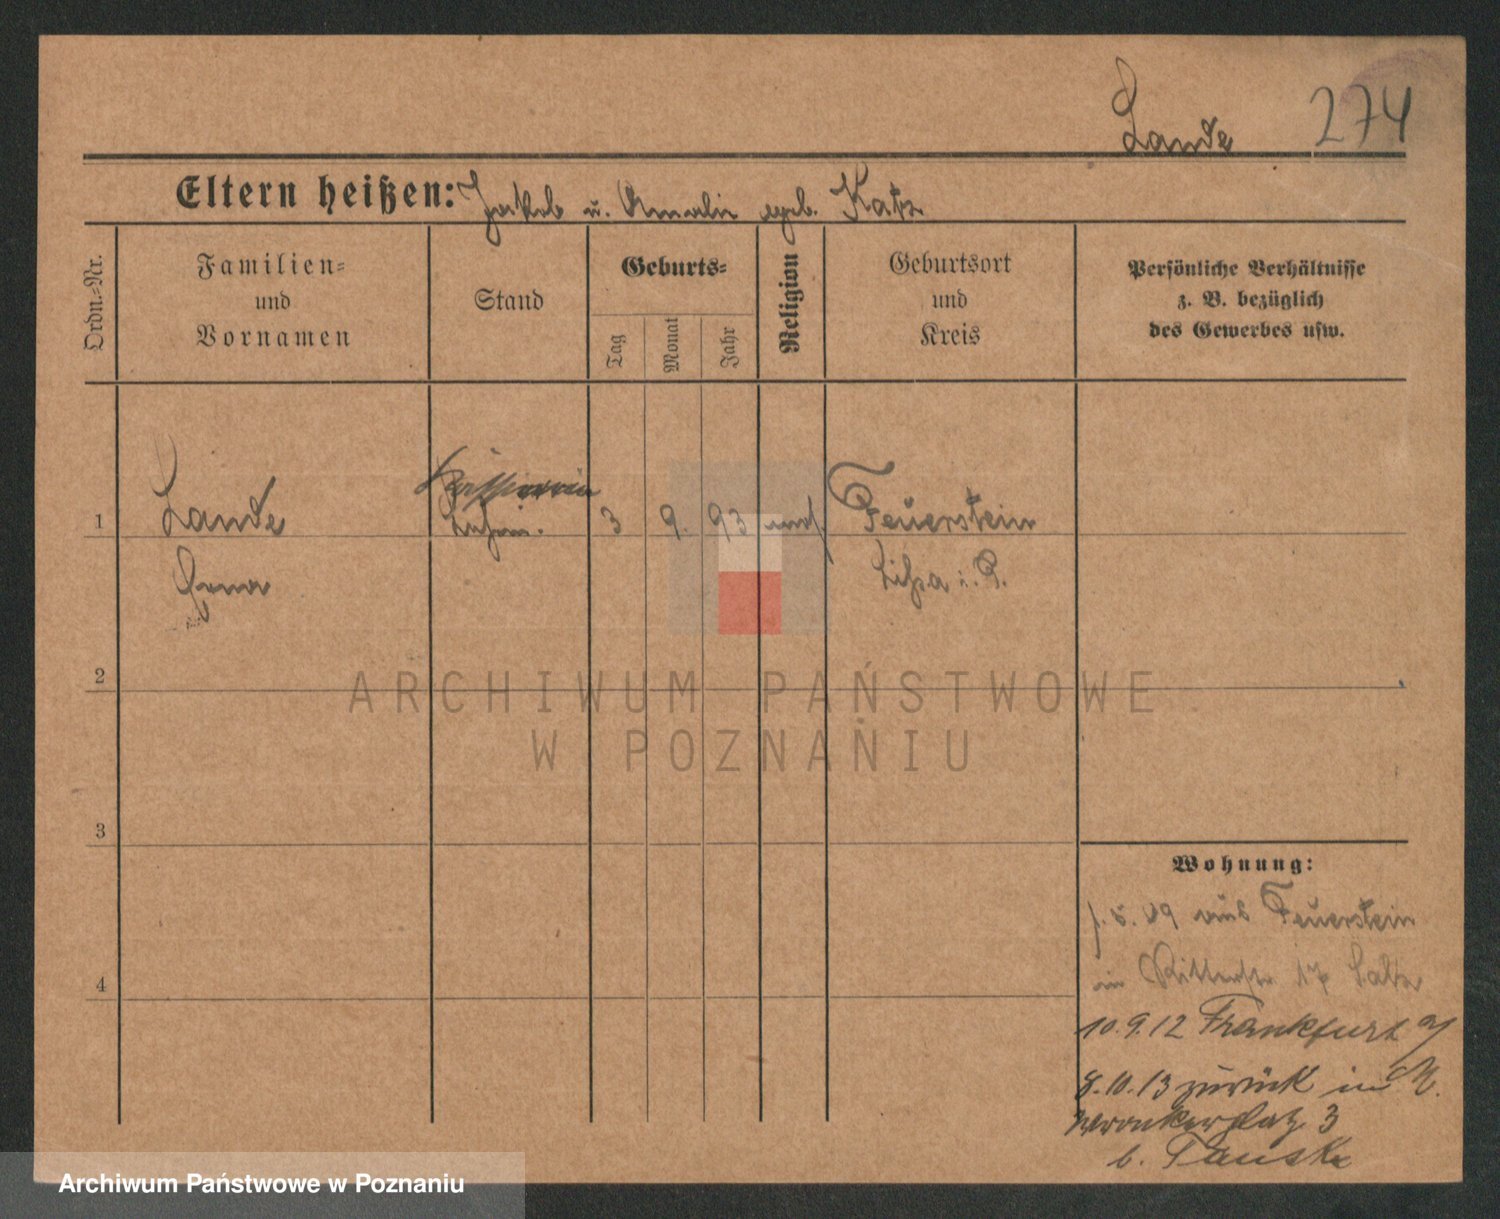 Lande 274
Eltern heißen: Jakob u. Amalie geb. Katz
Ordn.=Nr.
Familien=
und
Vornamen
Stand
Geburts=
Tag
Monat
Jahr
Religion
Geburtsort
und
Kreis
Persönliche Verhältnisse
z. B. bezüglich
des Gewerbes usw.
1 Lande 3 9. 93 mos. Feuerstein
Erna Lissa i. P.
2
3
4
Wohnung:
5. 09 aus Feuerstein
in Ritterstr 17
10.9.12 Frankfurt a/
8.10.13 zurück in M.
Wronkerplatz 3
b. Tauske
ARCHIWUM PAŃSTWOWE
W POZNANIU
Archiwum Państwowe w Poznaniu